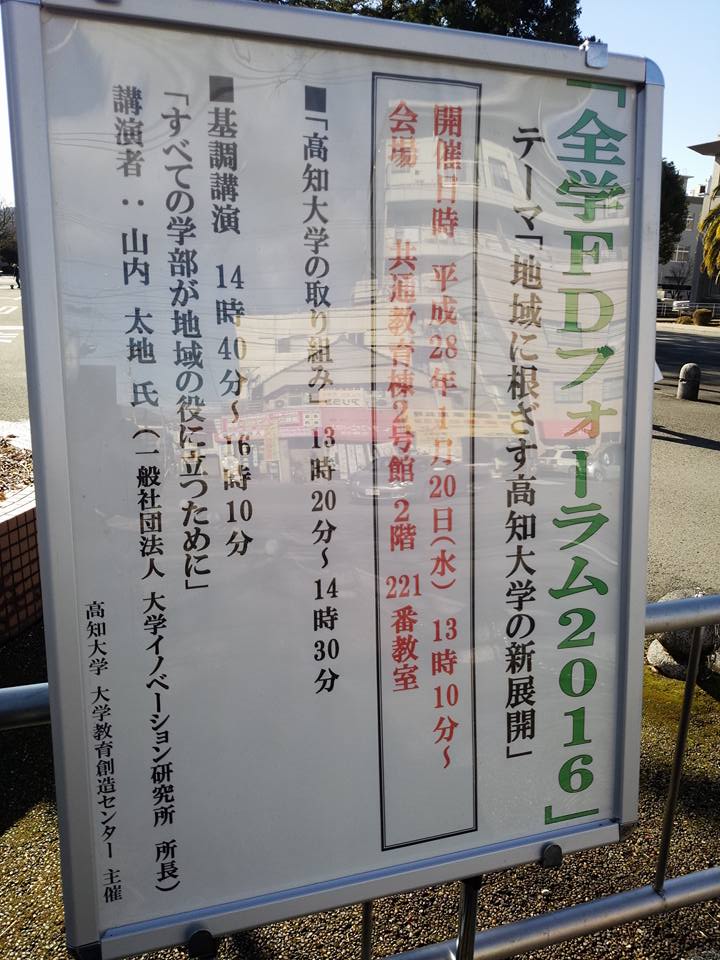 「全学FDフォーラム2016」
テーマ「地域に根ざす高知大学の新展開」
開催日時 平成28年1月20日(水) 13時10分~
会場 共通教育棟2号館 2階 221番教室
■「高知大学の取り組み」13時20分~14時30分
■基調講演 14時40分~16時10分
「すべての学部が地域の役に立つために」
講演者:山内 太地 氏(一般社団法人 大学イノベーション研究所 所長)
高知大学 大学教育創造センター 主催